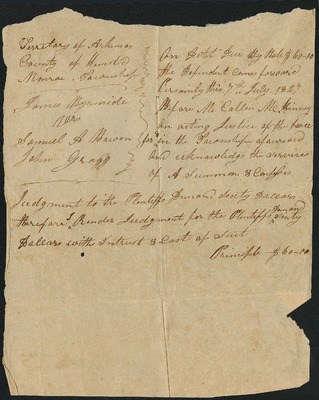 Terretory of Arkansas
County of Hemsted
Monroe Township
James Byrnside
vers
Samuel A
John Gragg
An Debt Due By Note $60-00
the Defendent Comes forward
this 7th July 1827
Before Me Callen McKinney
an acting Justice of the peace
in the Township aforesaid
and acknowledges the Servises
of A Summon &
Judgment to the Plentiffs Dmand Sixty Dallars
therefore I Render Judgment for the Plentiffs Demand Sixty
Dallers with Intrust & Costs of Suit
Principle $60-00